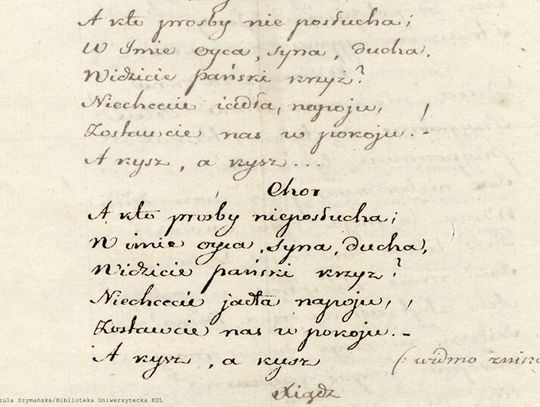 A kto prosby nie posłucha;
W Imie oyca, syna, ducha.
Widzicie pański krzyż?
Niechcecie iadła, napoju, !
Zostawcie nas w pokoju. –
A kysz, a kysz...
Chor
A kto prosby nieposłucha;
W imie oyca, syna, ducha,
Widzicie pański krzyż?
Niechcecie jadła napoju, !
Zostawcie nas w pokoju. –
A kysz, a kysz (: widmo znika
Xiądz
zula Szymańska/Biblioteka Uniwersytecka KUL